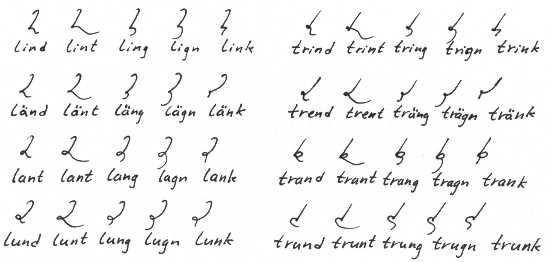 lind lint ling lign link trind trint tring trign trink
länd länt läng lägn länk trend trent träng trägn tränk
lant lant lang lagn lank trand trant trang tragn trank
lund lunt lung lugn lunk trund trunt trung trugn trunk